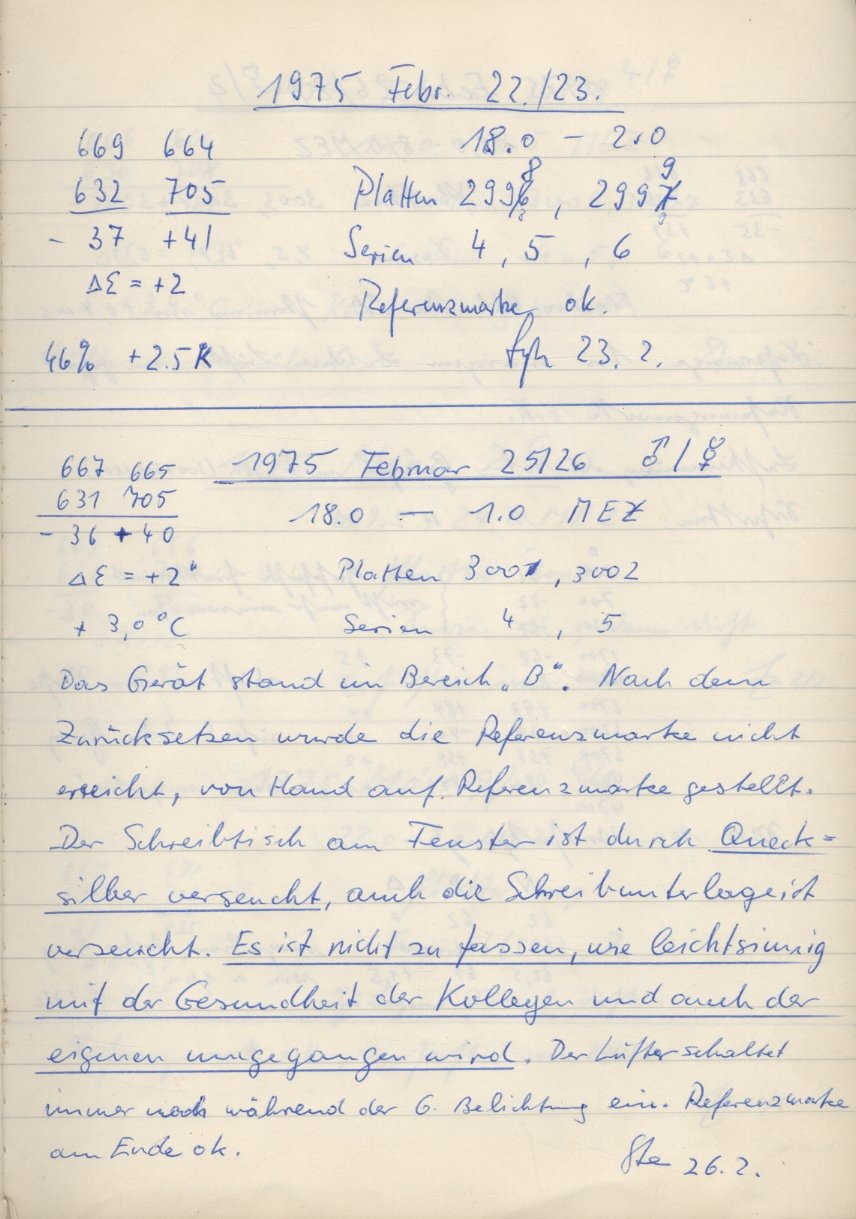 1975 Febr. 22./23.
669 664 18.0 — 2.0
632 705 Platten 2998, 2999
- 37 +41 Serien 4, 5, 6
Δε = +2
Referenzmarke ok.
46% +2.5 K 23. 2.
667 665 1975 Februar 25/26 ♂ / ☿
631 705
- 36 + 40 18.0 — 1.0 MEZ
Δε = +2" Platten 3001, 3002
+ 3,0 °C Serien 4, 5
Das Gerät stand im Bereich „B“. Nach dem
Zurücksetzen wurde die Referenzmarke nicht
erreicht, von Hand auf Referenzmarke gestellt.
Der Schreibtisch am Fenster ist durch Queck-
silber verseucht, auch die Schreibunterlage ist
verseucht. Es ist nicht zu fassen, wie leichtsinnig
mit der Gesundheit der Kollegen und auch der
eigenen umgegangen wird. Der Lüfter schaltet
immer noch während der 6. Belichtung ein. Referenzmarke
am Ende ok.
Ste 26.2.